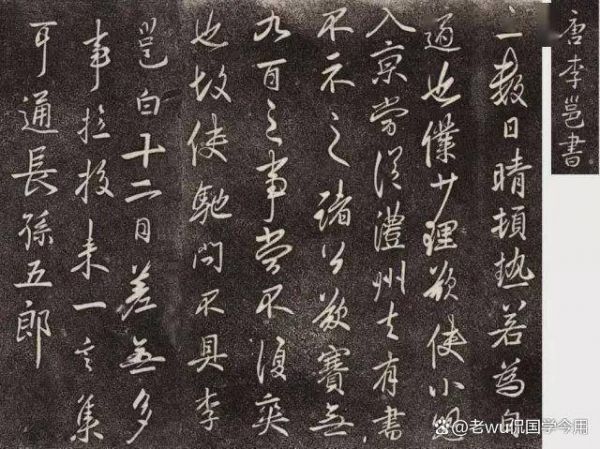 唐李邕書
數日晴頓熱若為自
適也僕少理欲使小兒
入京當從澧州去有書
不示之諸公欲賽無
九百之事當不復奕
也故使馳問不具李
邕白十二日差無多
事拉披來一言集
可通長孫五郎
@老wu侃国学今用